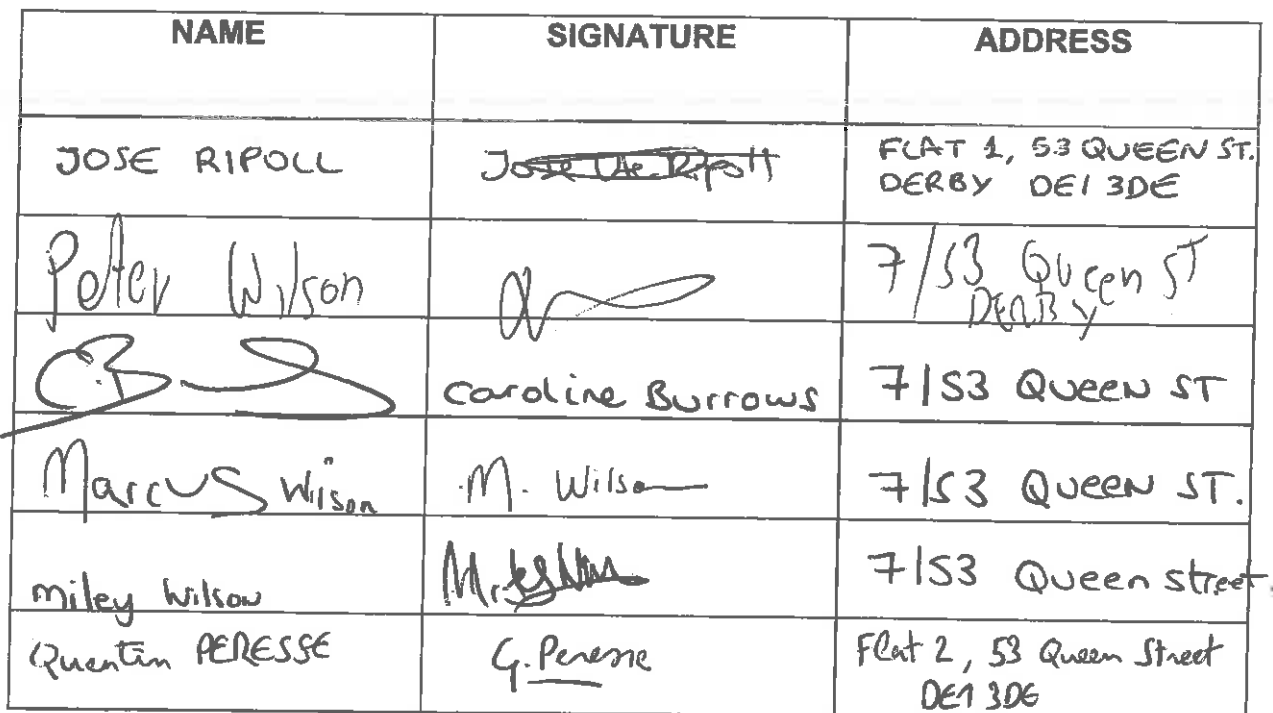 NAME SIGNATURE ADDRESS
JOSE RIPOLL FLAT 1, 53 QUEEN ST.
DERBY DE1 3DE
Peter Wilson 7/53 Queen ST
DERBY
Caroline Burrows 7/53 Queen ST
Marcus Wilson M. Wilson 7/53 Queen ST.
Miley Wilson 7/53 Queen street.
Quentin PERESSE Q. Peresse Flat 2, 53 Queen Street
DE1 3DE